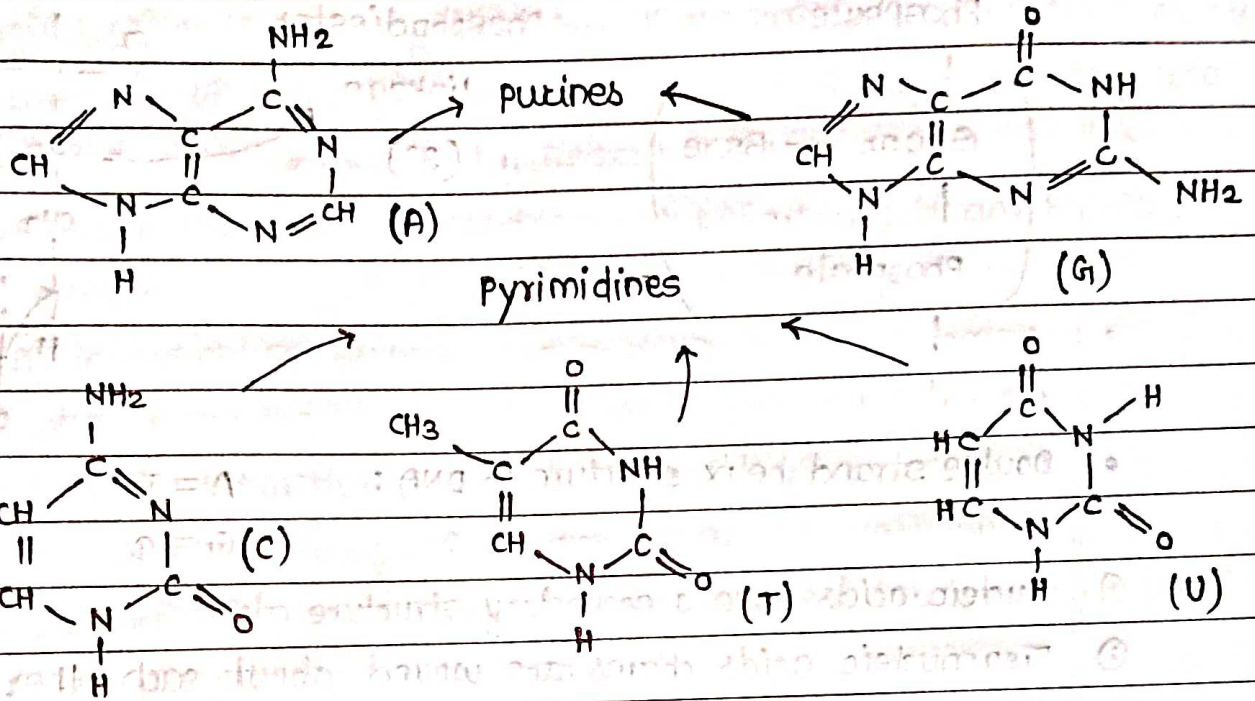 NH2
N
C
C
N
CH
N
C
N
CH
H
(A)
purines
O
C
N
C
NH
CH
C
C
N
N
NH2
H
(G)
Pyrimidines
NH2
C
CH
N
(C)
CH
C
N
O
H
O
CH3
C
C
NH
CH
C
N
O
H
(T)
O
C
H
HC
N
HC
C
N
O
H
(U)